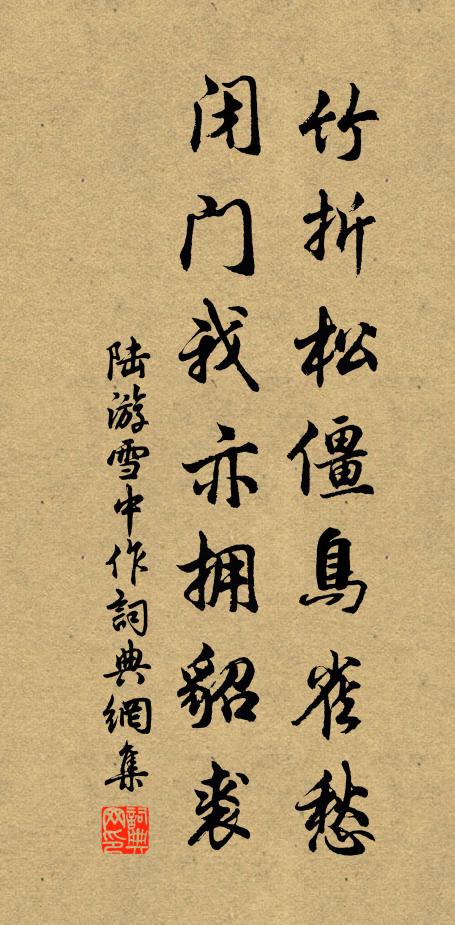 竹折松僵鳥雀愁
闭门我亦拥貂裘
陆游雪中作詞典網集
詞典网印